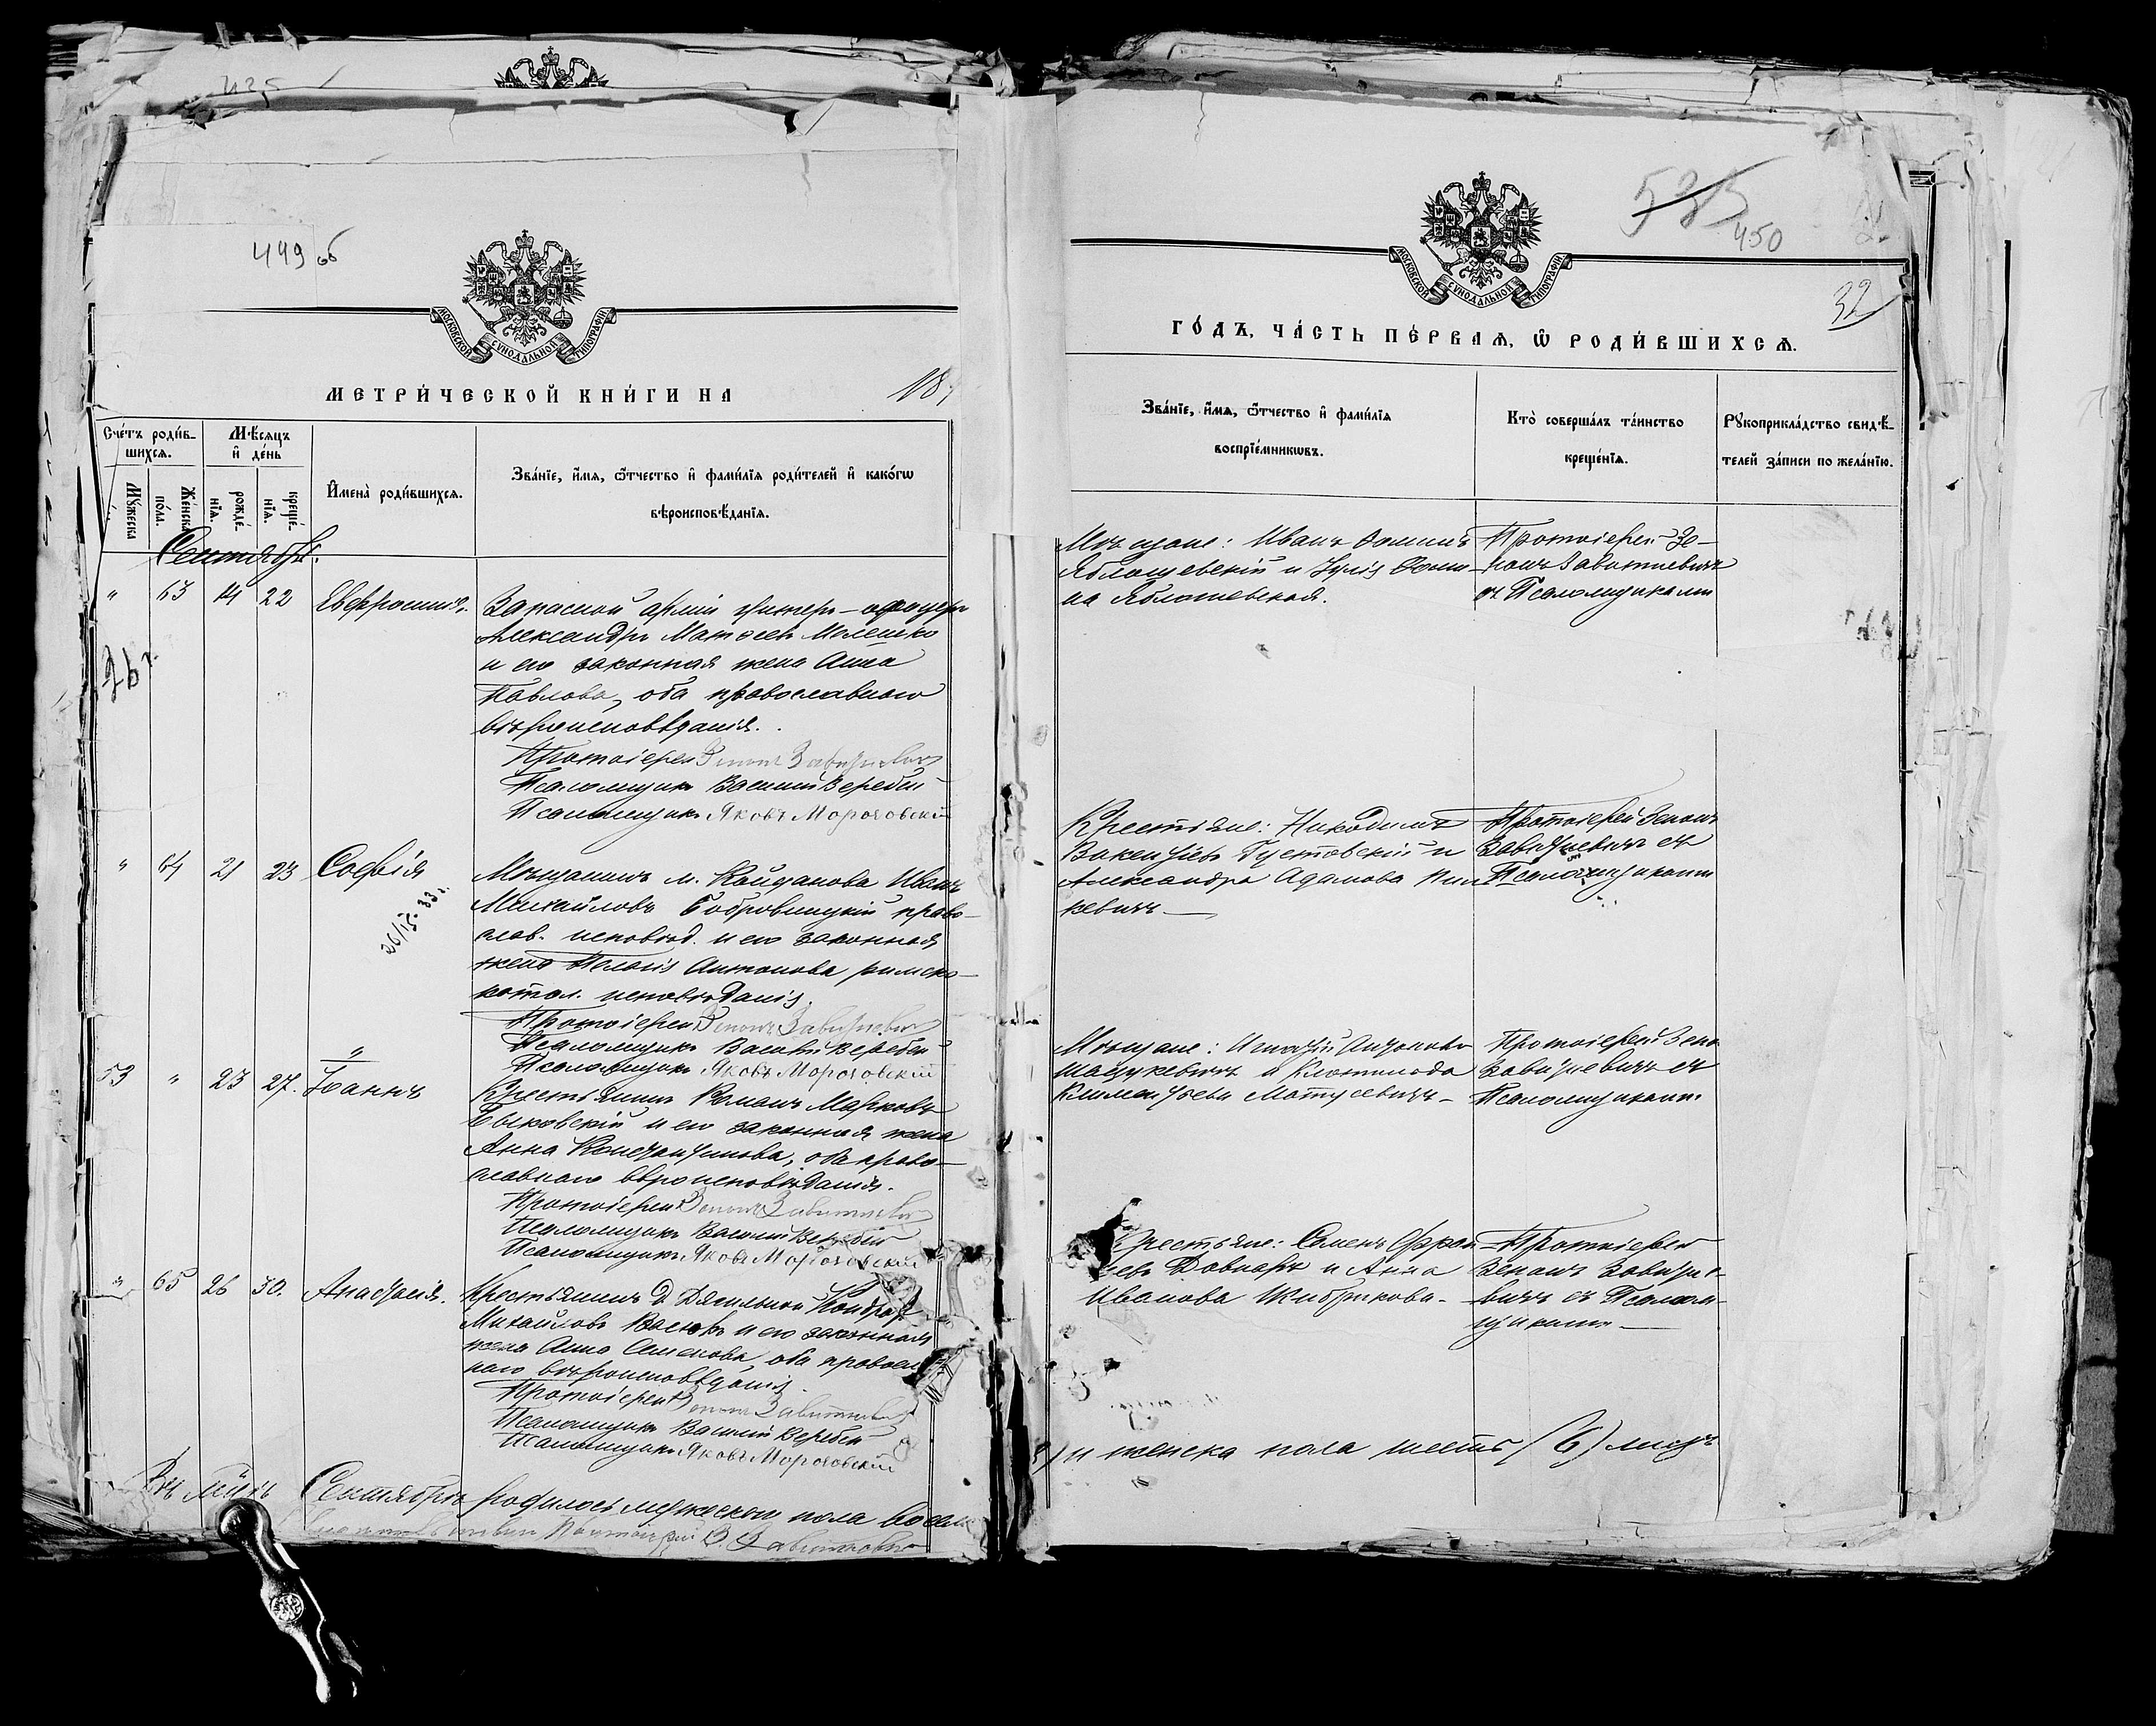 449 об
МОСКОВСКОЙ СѴНОДАЛЬНОЙ ТИПОГРАФІИ
МЕТРИ́ЧЕСКОЙ КНИ́ГИ НА 18
Сче́тъ роди́в-
шихся.
Мѣ́сяцъ
и҆ де́нь
Мꙋ́жеска
Же́нска
по́ла.
рожде́-
нїѧ.
креще́-
нїѧ.
И҆мена̀ роди́вшихсѧ.
Зва́нїе, и҆́мѧ, ѻ҆́тчество и҆ фами́лїѧ роди́телей и҆ како́гѡ
вѣроисповѣ́данїѧ.
Сентябрь.
" 63 14 22 Евфросинія.
Запасной арміи унтеръ-офицеръ
Александръ Матѳеевъ Мелешко
и его законная жена Анна
Павлова, оба православнаго
вѣроисповѣданія.
Протоіерей Зенонъ Завитневичъ
Псаломщикъ Василій Веребей
Псаломщикъ Яковъ Мороговскій
" 64 21 23 Софія
Мѣщанинъ м. Койданова Иванъ
Михайловъ Бобровницкій право-
слав. исповѣд. и его законная
жена Пелагія Антонова римско-
катол. исповѣданія.
Протоіерей Зенонъ Завитневичъ
Псаломщикъ Василій Веребей
Псаломщикъ Яковъ Мороговскій
53 " 23 27. Іоаннъ
Крестьянинъ Романъ Марковъ
Быковскій и его законная жена
Анна Константинова, оба право-
славнаго вѣроисповѣданія.
Протоіерей Зенонъ Завитневичъ
Псаломщикъ Василій Веребей
Псаломщикъ Яковъ Мороговскій
" 65 26 30. Анастасія.
Крестьянинъ д. Кондратъ
Михайловъ и его законная
жена Анна Семенова, оба правосл
наго вѣроисповѣданія.
Протоіерей Зенонъ Завитневичъ
Псаломщикъ Василій Веребей
Псаломщикъ Яковъ Мороговскій
Въ Сентябрѣ родилось мужескаго пола восем
Протоіерей З Завитневичъ
535
450
32
МОСКОВСКОЙ СѴНОДАЛЬНОЙ ТИПОГРАФІИ
ГО́ДЪ, ЧА́СТЬ ПЕ́РВАѦ, Ѡ҆ РОДИ́ВШИХСѦ.
Зва́нїе, и҆́мѧ, ѻ҆́тчество и҆ фами́лїѧ
воспрїе́мникѡвъ.
Кто̀ соверша́лъ та́инство
креще́нїѧ.
Рꙋкоприкла́дство свидѣ́-
телей за́писи по жела́нїю.
Мѣщане: Иванъ Ѳоминъ
Яблошевскій и Юлія Ѳоми-
на Яблошевская.
Протоіерей Зе-
нонъ Завитневичъ
съ Псаломщиками
Крестьяне: Никодимъ
Викентіевъ Густовскій и
Александра Адамова Пин-
кевичъ
Протоіерей Зенонъ
Завитневичъ съ
Псаломщиками
Мѣщане: Игнатій Антоновъ
Мацукевичъ и Клотильда
Климентьева Матусевичъ
Протоіерей Зено
Завитневичъ съ
Псаломщиками.
Крестьяне: Семенъ Фран
цевъ Довнаръ и Анна
Иванова Жибрикова.
Протоіерей
Зенонъ Завитне-
вичъ съ Псалом-
щиками.
8) и женска пола шесть (6) лицъ